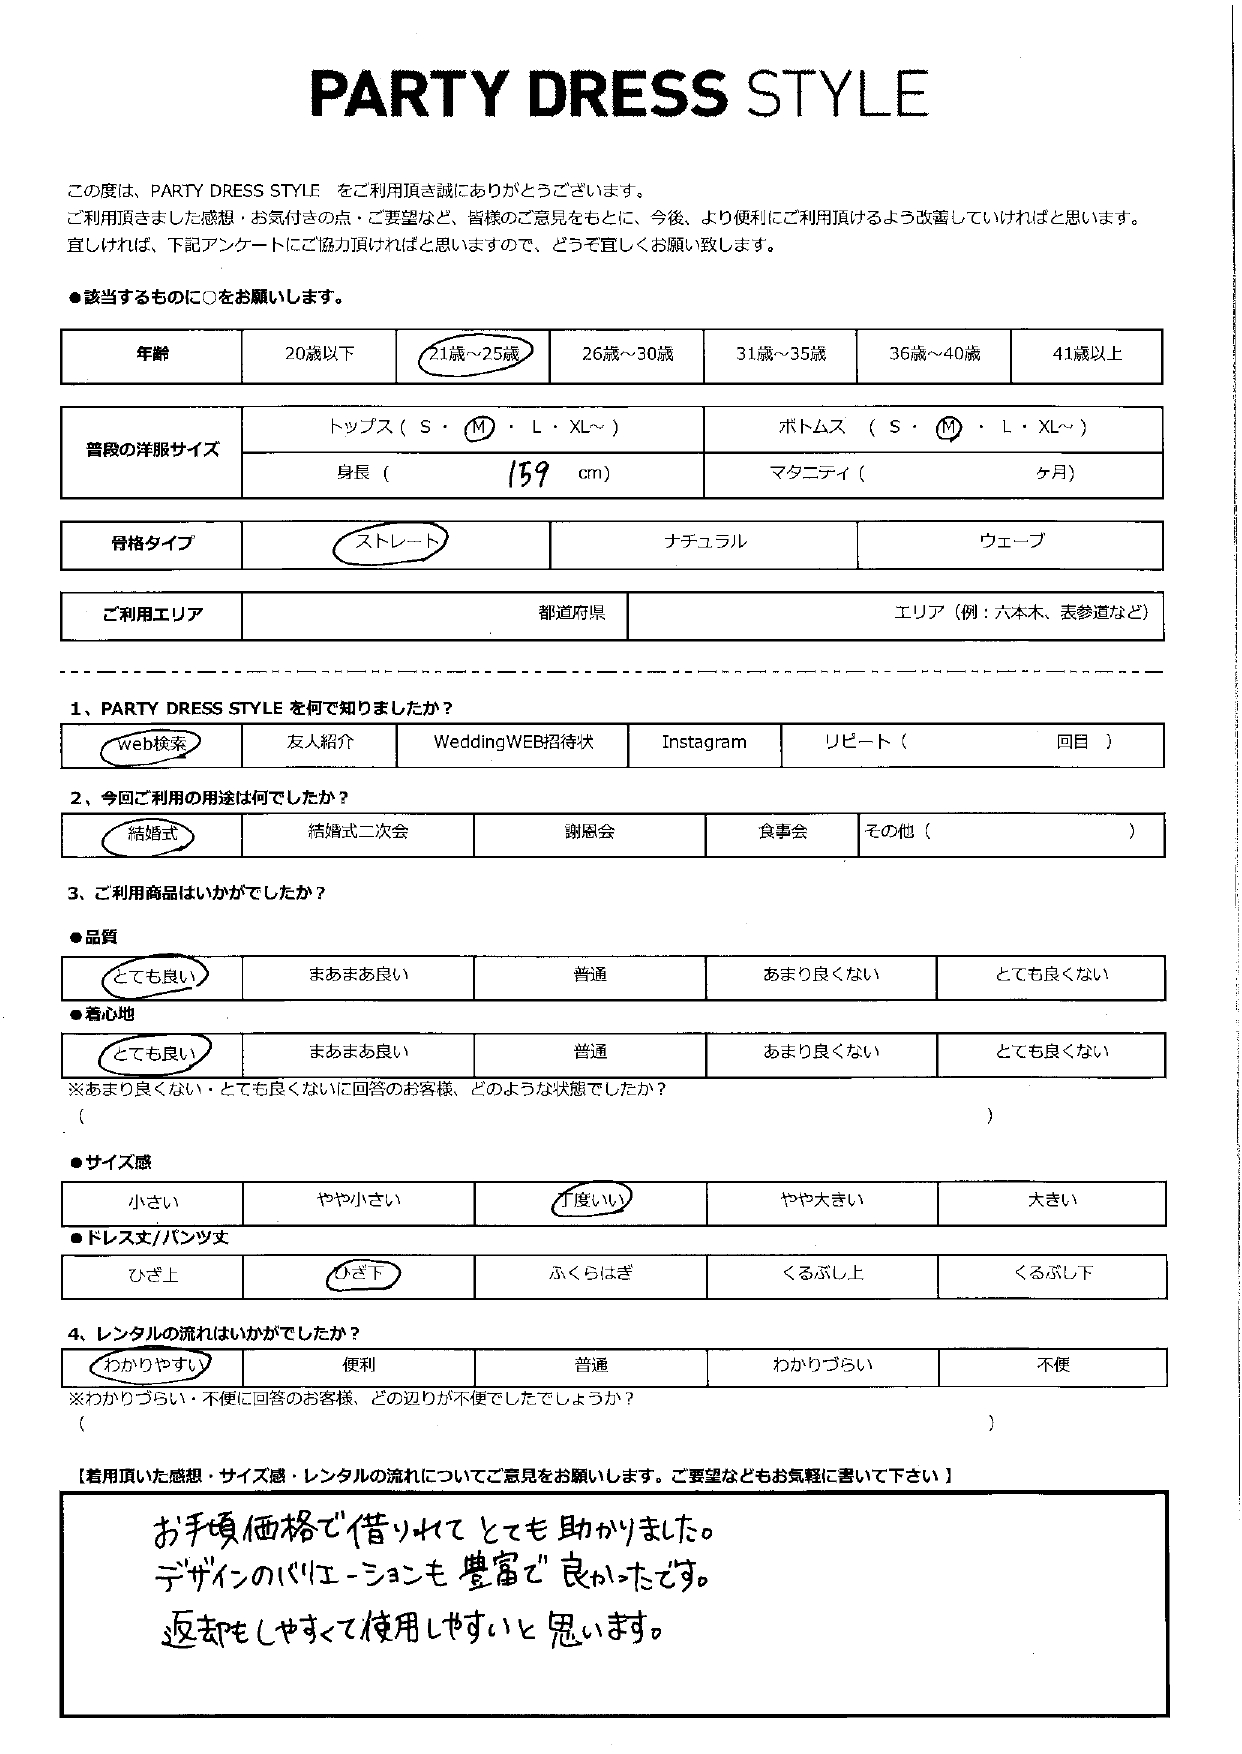 PARTY DRESS STYLE
この度は、PARTY DRESS STYLE をご利用頂き誠にありがとうございます。
ご利用頂きました感想・お気付きの点・ご要望など、皆様のご意見をもとに、今後、より便利にご利用頂けるよう改善していければと思います。
宜しければ、下記アンケートにご協力頂ければと思いますので、どうぞ宜しくお願い致します。
●該当するものに○をお願いします。
年齢 20歳以下 21歳～25歳 26歳～30歳 31歳～35歳 36歳～40歳 41歳以上
普段の洋服サイズ
トップス ( S ・ M ・ L ・ XL～ ) ボトムス ( S ・ M ・ L ・ XL～ )
身長 ( 159 cm) マタニティ ( ヶ月)
骨格タイプ ストレート ナチュラル ウェーブ
ご利用エリア 都道府県 エリア（例：六本木、表参道など）
1、PARTY DRESS STYLE を何で知りましたか？
web検索 友人紹介 WeddingWEB招待状 Instagram リピート（ 回目 ）
2、今回ご利用の用途は何でしたか？
結婚式 結婚式二次会 謝恩会 食事会 その他（ ）
3、ご利用商品はいかがでしたか？
●品質
とても良い まあまあ良い 普通 あまり良くない とても良くない
●着心地
とても良い まあまあ良い 普通 あまり良くない とても良くない
※あまり良くない・とても良くないに回答のお客様、どのような状態でしたか？
（ ）
●サイズ感
小さい やや小さい 丁度いい やや大きい 大きい
●ドレス丈/パンツ丈
ひざ上 ひざ下 ふくらはぎ くるぶし上 くるぶし下
4、レンタルの流れはいかがでしたか？
わかりやすい 便利 普通 わかりづらい 不便
※わかりづらい・不便に回答のお客様、どの辺りが不便でしたでしょうか？
（ ）
【着用頂いた感想・サイズ感・レンタルの流れについてご意見をお願いします。ご要望などもお気軽に書いて下さい 】
お手頃価格で借りれて とても 助かりました。
デザインのバリエーションも 豊富で 良かったです。
返却もしやすくて使用しやすいと思います。